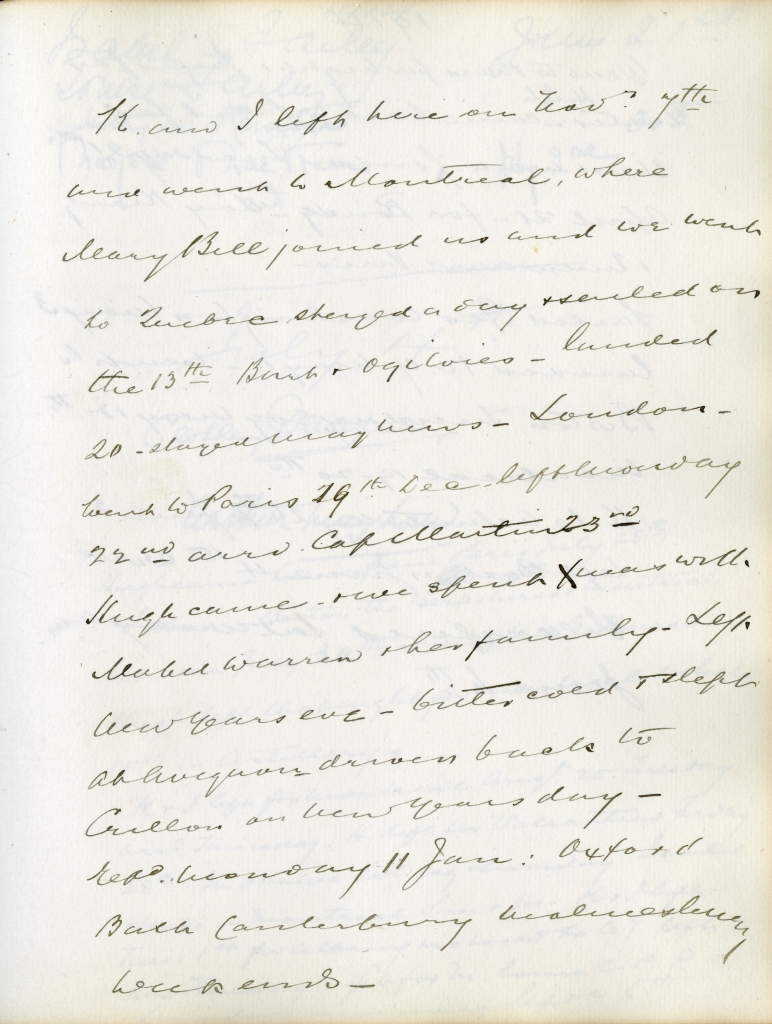 K. and I left here on Nov? 7th
and went to Montreal, where
Mary Bell joined us and we went
to Quebec stayed a day & sailed on
the 13th & Ogilvies - landed
20 - stayed - London -
went to Paris 19th Dec left Monday
22nd arrd. Cap Martin 23rd
Hugh came - & we spent Xmas with
Mabel Warren & her family - Left
New Years eve - bitter cold & slept
at Avignon - driven back to
Crillon on New Years day -
Monday 11 Jan: Oxford
Bath Canterbury Malmesbury
Weekends -